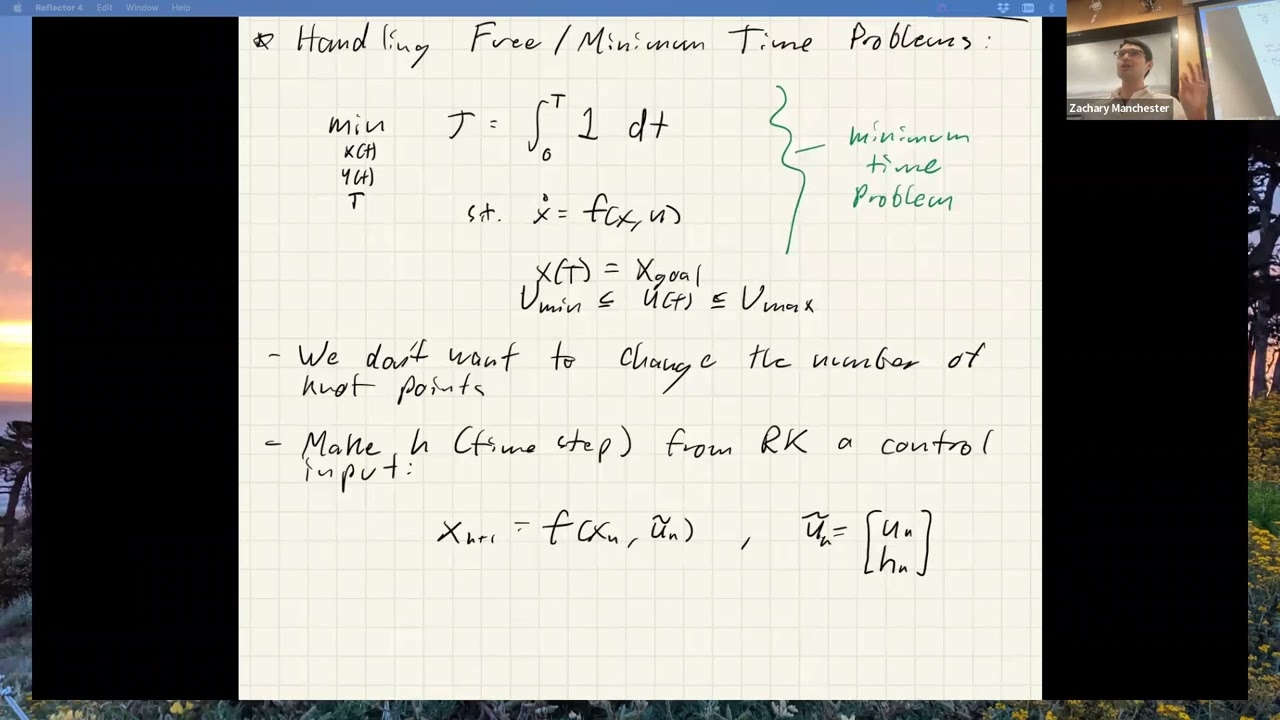 Reflector 4 Edit Window Help
Zachary Manchester
* Handling Free / Minimum Time Problems:
min J = ∫₀ᵀ 1 dt
x(t)
u(t)
T
s.t. ẋ = f(x,u)
x(T) = xgoal
Umin ≤ u(t) ≤ Umax
minimum
time
Problem
- We don't want to change the number of
knot points
- Make h (time step) from RK a control
input:
xn+1 = f(xn, ũn) , ũn = [un
hn]